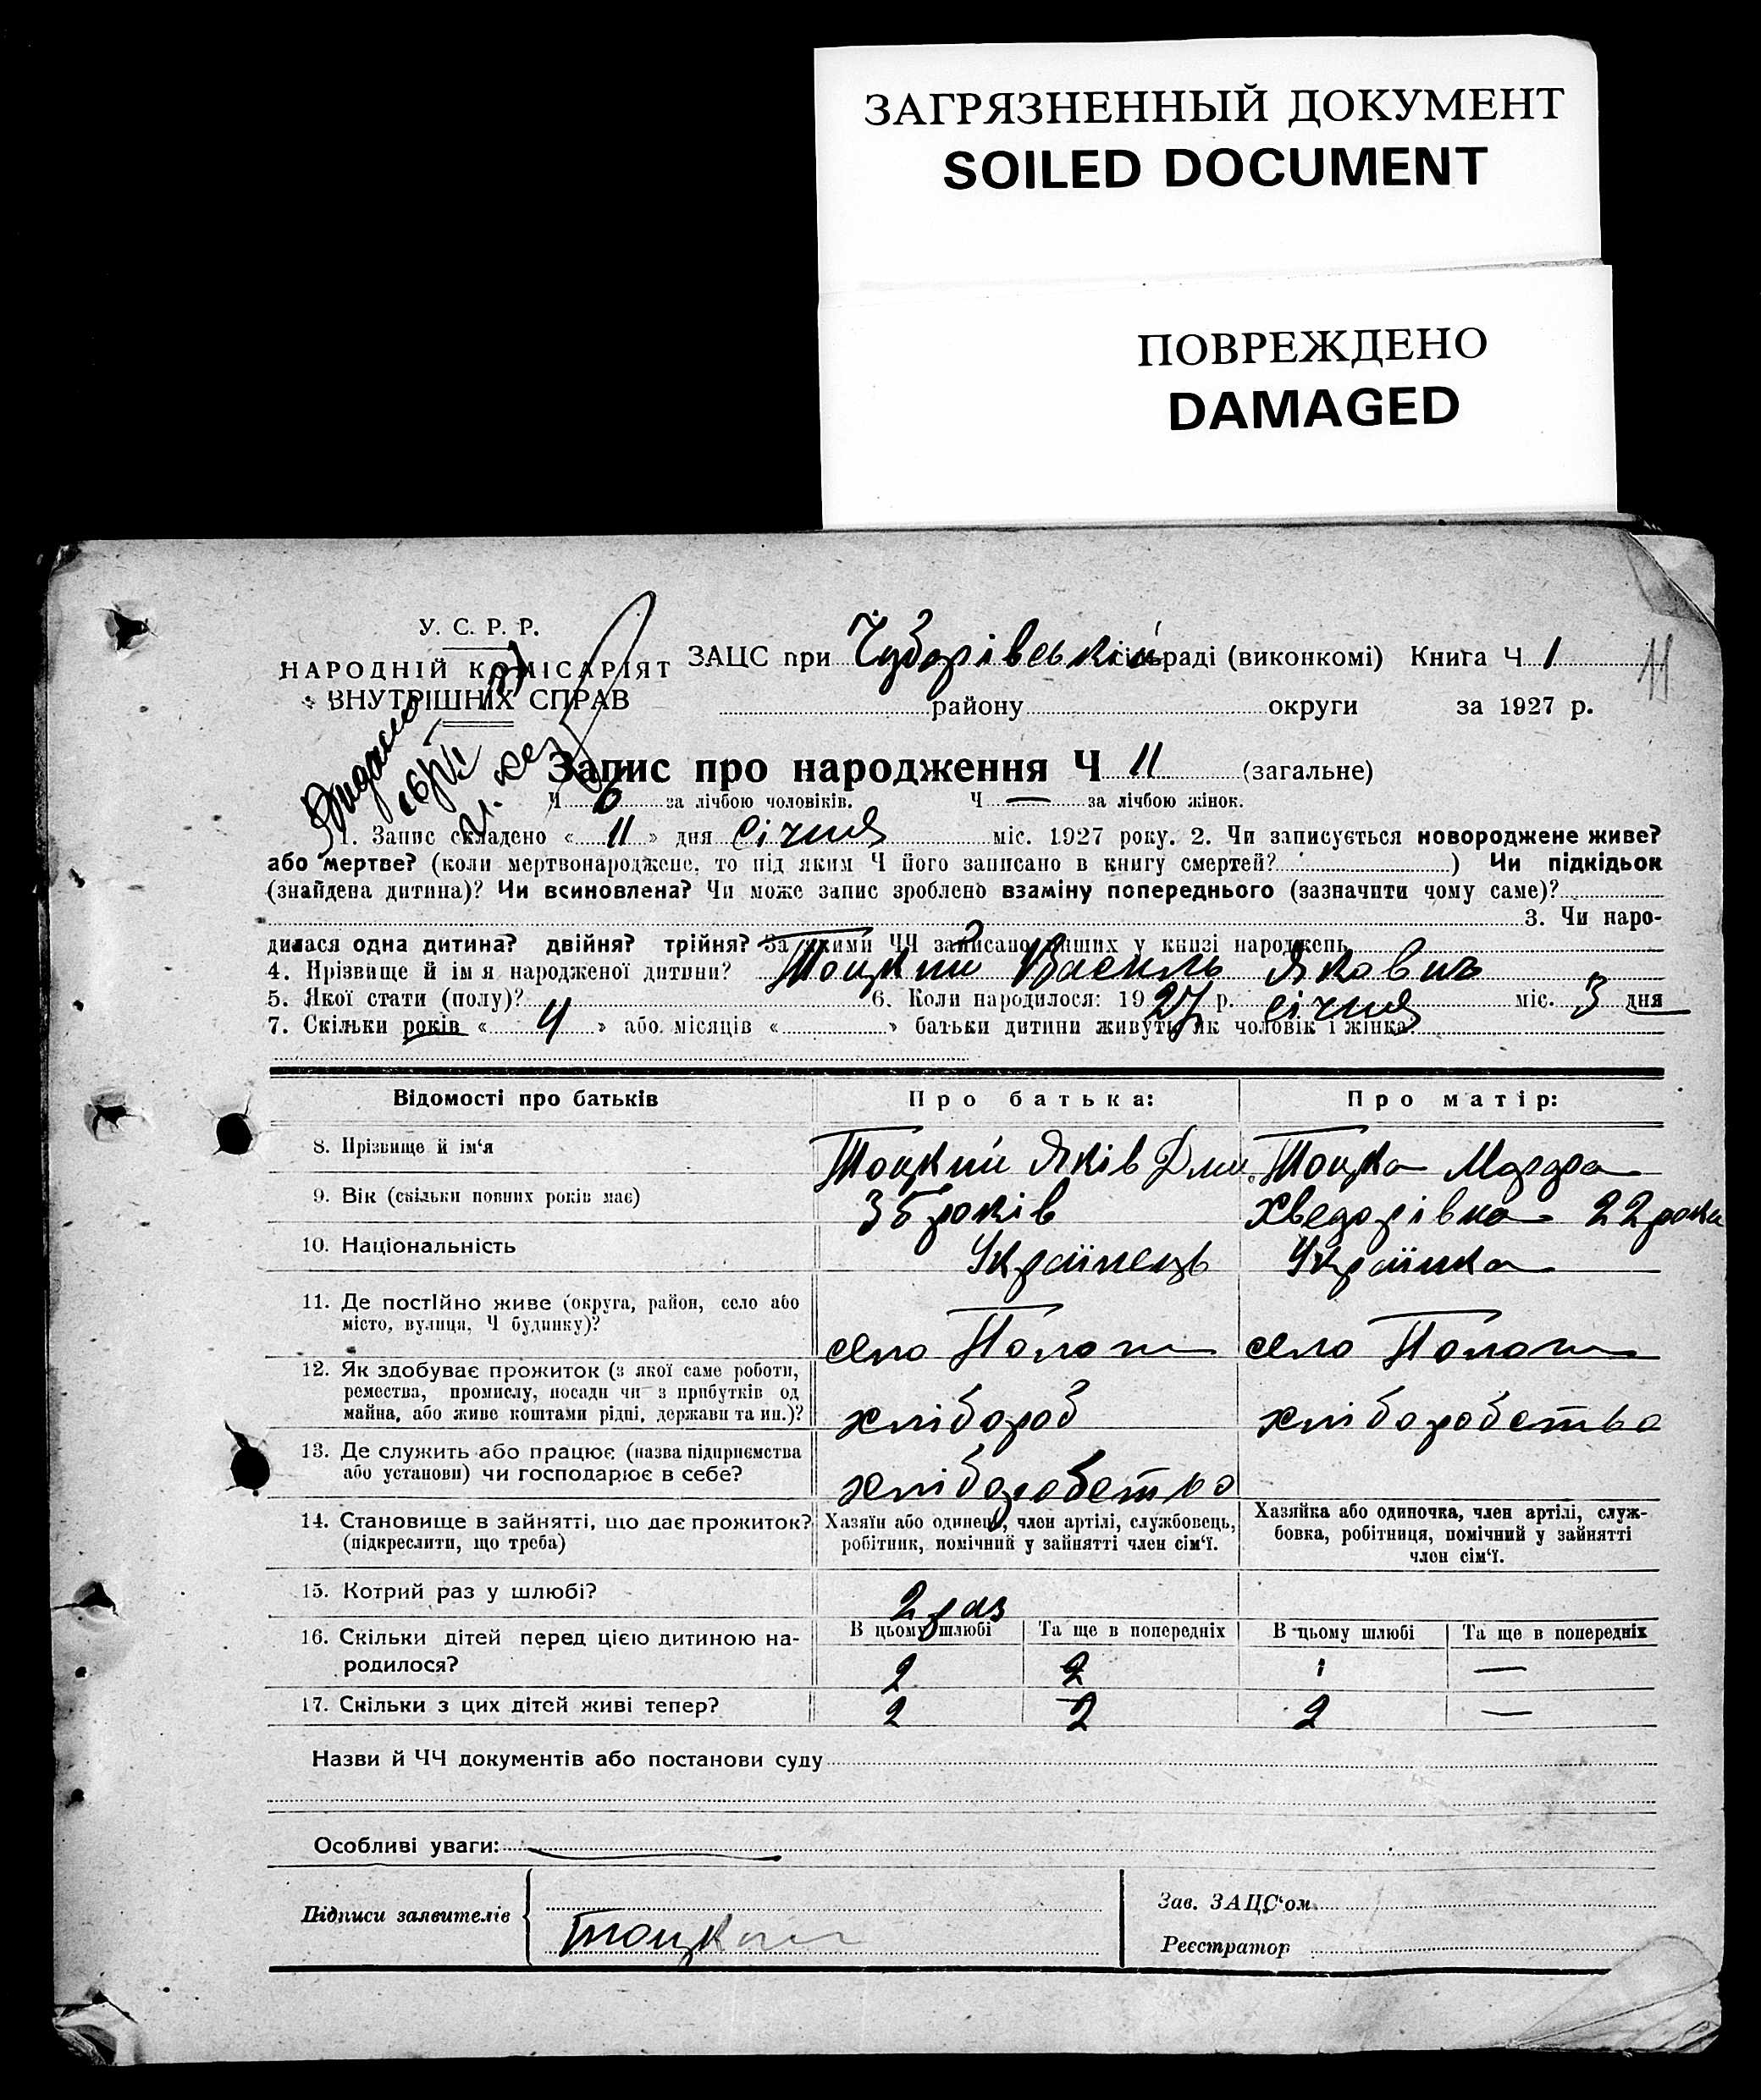 ЗАГРЯЗНЕННЫЙ ДОКУМЕНТ
SOILED DOCUMENT
ПОВРЕЖДЕНО
DAMAGED
У. С. Р. Р.
НАРОДНІЙ КОМІСАРІЯТ
ВНУТРІШНІХ СПРАВ
ЗАЦС при Чубарівській сільраді (виконкомі) Книга Ч 1
11
району округи за 1927 р.
Видано
Запис про народження Ч 11 (загальне)
Ч 6 за лічбою чоловіків. Ч — за лічбою жінок.
1. Запис складено « 11 » дня січня міс. 1927 року. 2. Чи записується новороджене живе?
або мертве? (коли мертвонароджене, то під яким Ч його записано в книгу смертей? ) Чи підкідьок
(знайдена дитина)? Чи всиновлена? Чи може запис зроблено взаміну попереднього (зазначити чому саме)?
3. Чи наро-
дилася одна дитина? двійня? трійня? За якими ЧЧ записано інших у книзі народжень
4. Прізвище й ім'я народженої дитини? Тоцкий Василь Якович
5. Якої стати (полу)? 6. Коли народилося: 1927 р. січня міс. 3 дня
7. Скільки років « 4 » або місяців « » батьки дитини живуть як чоловік і жінка?
Відомості про батьків Про батька: Про матір:
8. Прізвище й ім'я Тоцкий Яків Дми. Тоцка Марфа
9. Вік (скільки повних років має) 35 років Хведорівна 22 роки
10. Національність Українець Українка
11. Де постійно живе (округа, район, село або
місто, вулиця, Ч будинку)? село Пологи село Пологи
12. Як здобуває прожиток (з якої саме роботи,
ремества, промислу, посади чи з прибутків од
майна, або живе коштами рідні, держави та ин.)? хлібороб хліборобство
13. Де служить або працює (назва підприємства
або установи) чи господарює в себе? хліборобство
14. Становище в зайнятті, що дає прожиток?
(підкреслити, що треба)
Хазяїн або одинець, член артілі, службовець,
робітник, помічний у зайнятті член сім'ї.
Хазяйка або одиночка, член артілі, служ-
бовка, робітниця, помічний у зайнятті
член сім'ї.
15. Котрий раз у шлюбі? 2 раз
16. Скільки дітей перед цією дитиною на-
родилося?
В цьому шлюбі Та ще в попередніх В цьому шлюбі Та ще в попередніх
2 2 1 —
17. Скільки з цих дітей живі тепер? 2 2 2 —
Назви й ЧЧ документів або постанови суду
Особливі уваги:
Підписи заявителів Тоцкий
Зав. ЗАЦС'ом
Реєстратор